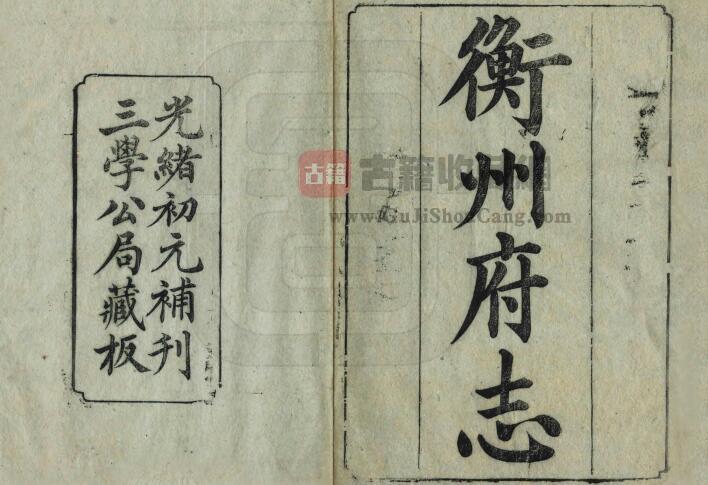 衡州府志
光緒初元補刋
三學公局藏板
古籍
古籍收藏網
www.GuJiShouCang.com